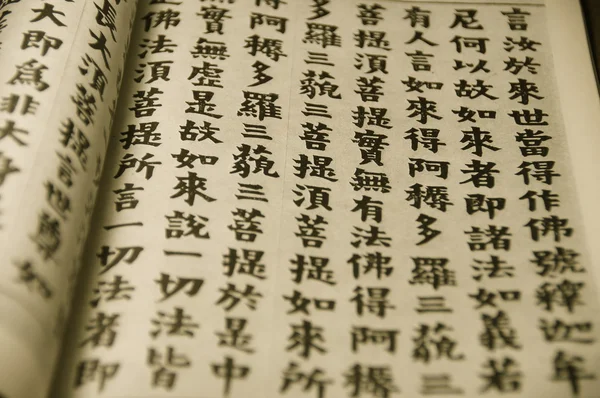 言汝於來世當得作佛號釋迦牟
尼何以故如來者即諸法如義若
有人言如來得阿耨多羅三藐三
菩提須菩提實無有法佛得阿耨
多羅三藐三菩提須菩提如來所
得阿耨多羅三藐三菩提於是中
無實無虛是故如來說一切法皆
是佛法須菩提所言一切法者即
長大須菩提言世尊如
大即為非大身